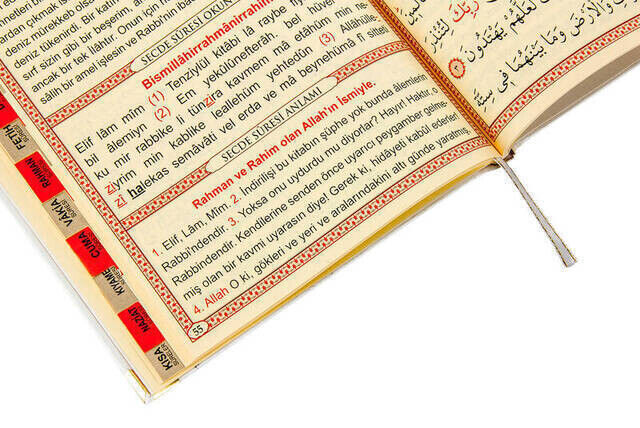 deniz mürekkep olsa
deniz tükenirdi. Bir katı
sırf sizin gibi bir beşerim, an
ancak bir tek ilâhtır. Onun için h
sâlih bir amel işlesin ve Rabbi'nin ibad
SECDE SÛRESİ OKUN
Bismillâhirrahmânirrahîm
Elif lâm mîm (1) Tenzîylül kitâbi lâ raybe
bil âlemiyn (2) Em yekûlûnefterâh. bel hüve
ku mir rabbike li tünzira kavmem mâ etâhüm min ne
ziyrim min kablike leallehüm yehtedûn (3) Allâhülle-
zî halekas semâvâti vel erda ve mâ beynehümâ fî sitteti
SECDE SÛRESİ ANLAMI
Rahman ve Rahim olan Allah'ın İsmiyle.
1. Elif, Lâm, Mîm. 2. İndirilişi bu kitabın şüphe yok bunda âlemlerin
Rabbi'ndendir. 3. Yoksa onu uydurdu mu diyorlar? Hayır! Haktır, o
Rabbindendir. Kendilerine senden önce uyarıcı peygamber gelme-
miş olan bir kavmi uyarasın diye! Gerek ki, hidâyeti kabûl ederler!
4. Allah O ki, gökleri ve yeri ve aralarındakini altı günde yaratmış,
55
رَبِّكَ لِتُنْذِرَ
لَعَلَّهُمْ يَهْتَدُونَ
وَالْأَرْضَ وَمَا بَيْنَهُمَا فِي سِتَّةِ
FETİH
RAHMAN
VAKIA
CUMA
KIYAME
NAZİAT
KISA
SURELER